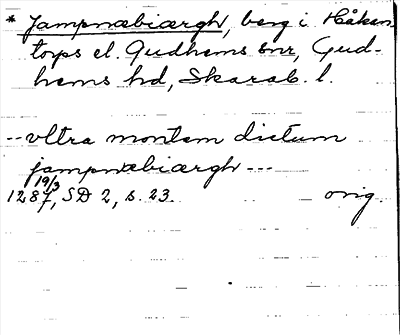 * Jampnæbiærgh, berg i Håkan-
torps el. Gudhems snr, Gud-
hems hd, Skarab. l.
-- vltra montem dictum
jampnæbiærgh ---
19/3
1287, SD 2, s. 23. orig.